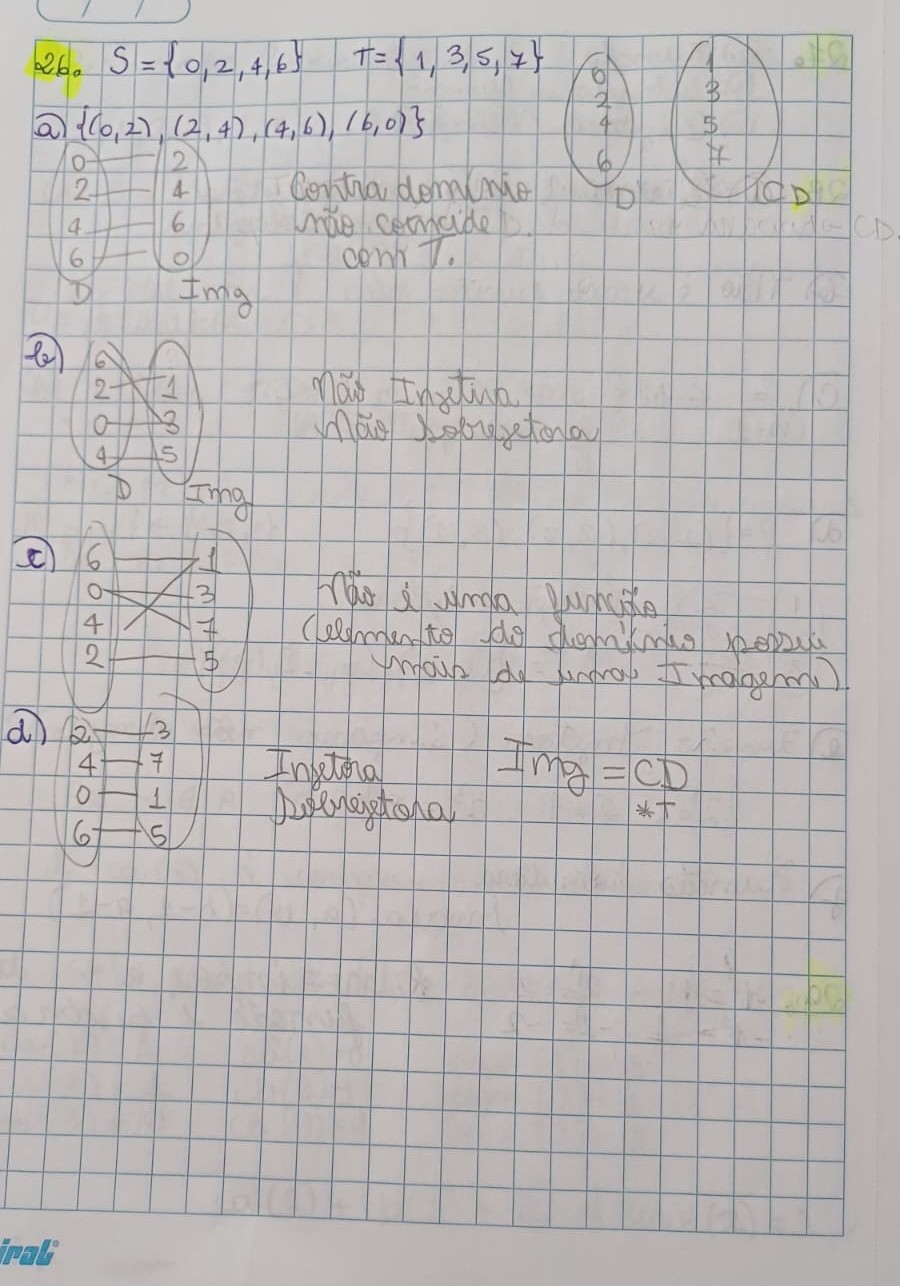 26. S = {0, 2, 4, 6} T = {1, 3, 5, 7}
0
2
4
6
D
1
3
5
7
CD
a) {(0,2), (2,4), (4,6), (6,0)}
0 2
2 4
4 6
6 0
D Img
Contra domínio
não coincide
com T.
CD
b)
6
2 1
0 3
4 5
D Img
Não Injetiva
Não Sobrejetora
c)
6 1
0 3
4 7
2 5
Não é uma função
(elemento do domínio possui
mais de uma Imagem)
d)
2 3
4 7
0 1
6 5
Injetora
Sobrejetora
Img = CD
*T